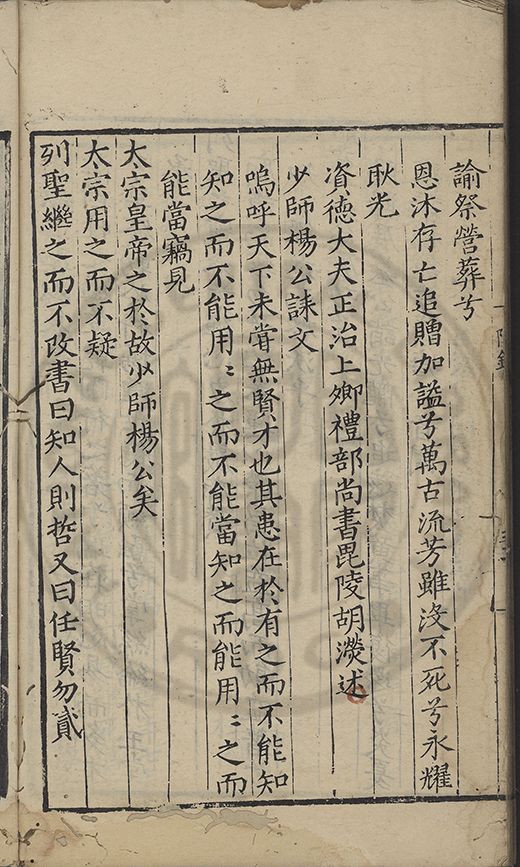 諭祭營葬兮
恩沐存亡追贈加謚兮萬古流芳雖沒不死兮永耀
耿光
資德大夫正治上卿禮部尚書毘陵胡濙述
少師楊公誄文
嗚呼天下未嘗無賢才也其患在於有之而不能知
知之而不能用〻之而不能當知之而能用〻之而
能當竊見
太宗皇帝之於故少師楊公矣
太宗用之而不疑
列聖繼之而不改書曰知人則哲又曰任賢勿貳